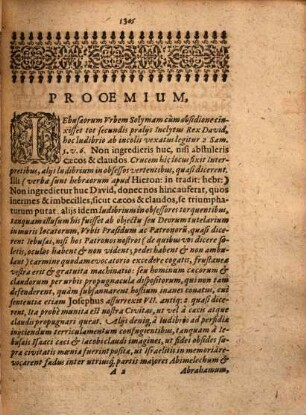 1305
PROOEMIUM,
IEbusæorum Urbem Solymam cùm obsidione cin-
xisset tot secundis prælijs Inclytus Rex David,
hoc ludibrio ab incolis vexatus legitur 2. Sam.
5. v. 6. Non ingredieris huc, nisi abstuleris
cæcos & claudos. Crucem hîc locus fixit inter-
pretibus, alijs ludibrium in obsessos vertentibus, quasi dicerent
Illi (verba sunt hebræorum apud Hieron: in tradit: hebr:)
Non ingredietur huc David, donec nos hinc auferat, quos
inermes & imbecilles, sicut cæcos & claudos, se triumpha-
turum putat. alijs idem ludibrium in obsessores torquentibus,
tanquam illusum his fuisset ab objectu seu Deorum tutelarium
in muris locatorum, Urbis Præsidum ac Patronorū, quasi dice-
rent Iebusæi, nisi hos Patronos nostros (de quibus vos dicere so-
letis, oculos habent & non vident; pedes habent & non ambu-
lant) tacentes quodammodo vocato excedere cogatis, frustanea
vestra erit & gratuita machinatio: seu hominum cæcorum &
claudorum per urbis propugnacula dispositorum, qui non tam
defenderent, quàm subsannarent hostium inanes conatus, cui
sententiæ etiam Josephus assurrexit VII. antiq: 2. quasi dice-
rent, Ita probè munita est nostra Civitas, ut vel à cæcis atque
claudis propugnari queat. Alijs deniq; à ludibrio ad perfidiæ
injiciendum terriculamentum confugientibus, tanquam à Ie-
busæis Isaaci cæci & Iacobi claudi imagines, ut fidei obsides su-
pra civitatis mœnia fuerint positæ, ut Israëlitis in memoriã re-
vocarent fœdus inter utriusq; partis majores Abimelechum &
A 2
Abrahamum,